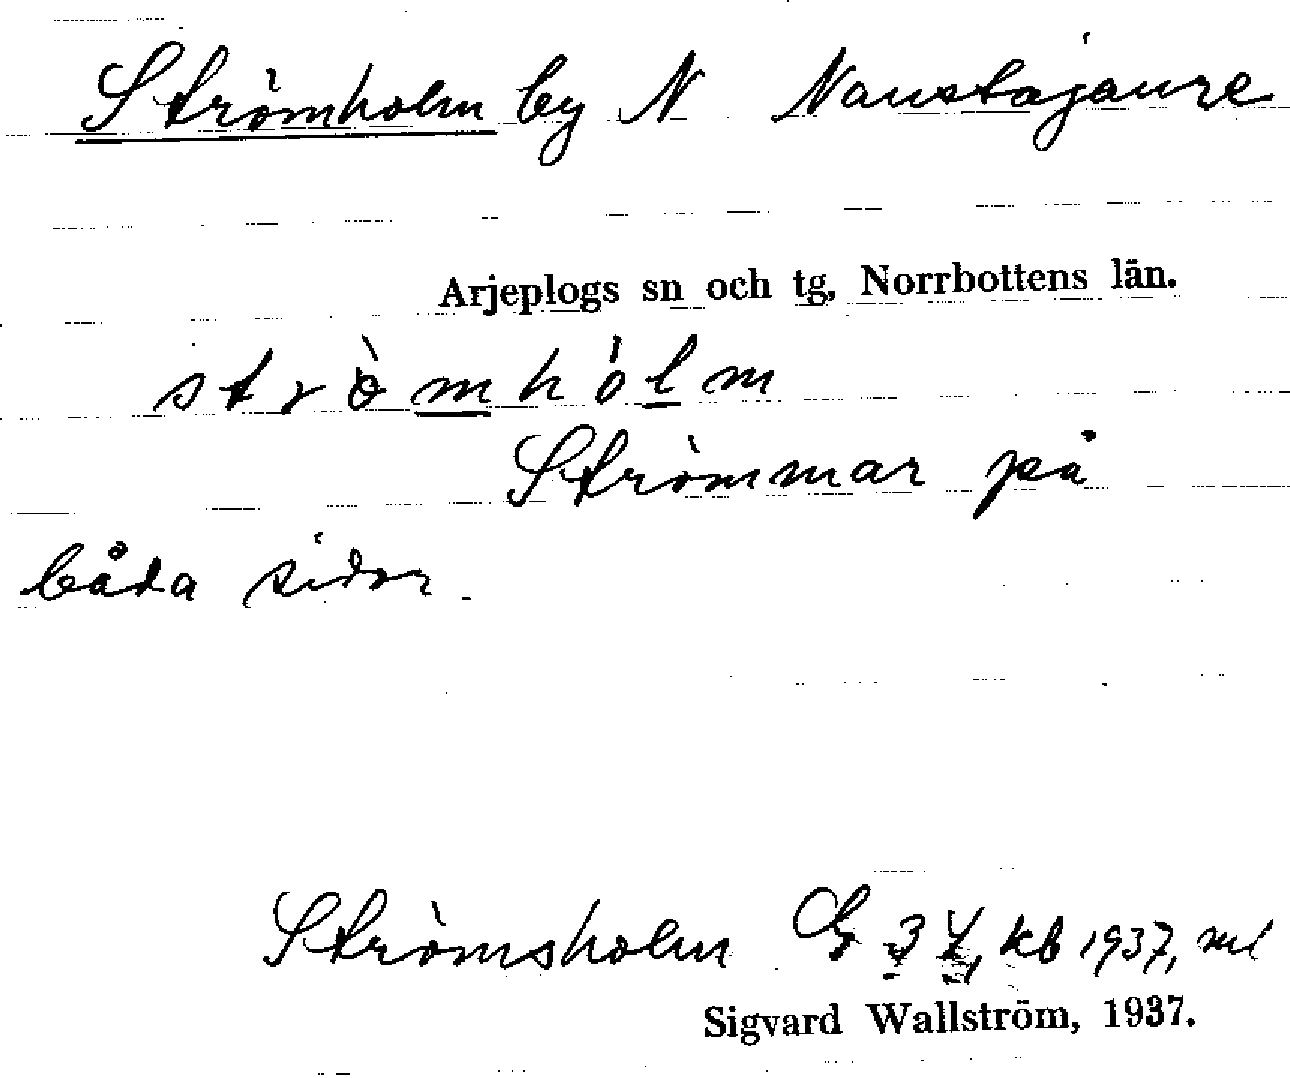 Strömholm by N Naustajaure
Arjeplogs sn och tg, Norrbottens län.
strö̀mhólm
Strömmar på
båda sidor
Strömsholm G 34, kb 1937, ml
Sigvard Wallström, 1937.